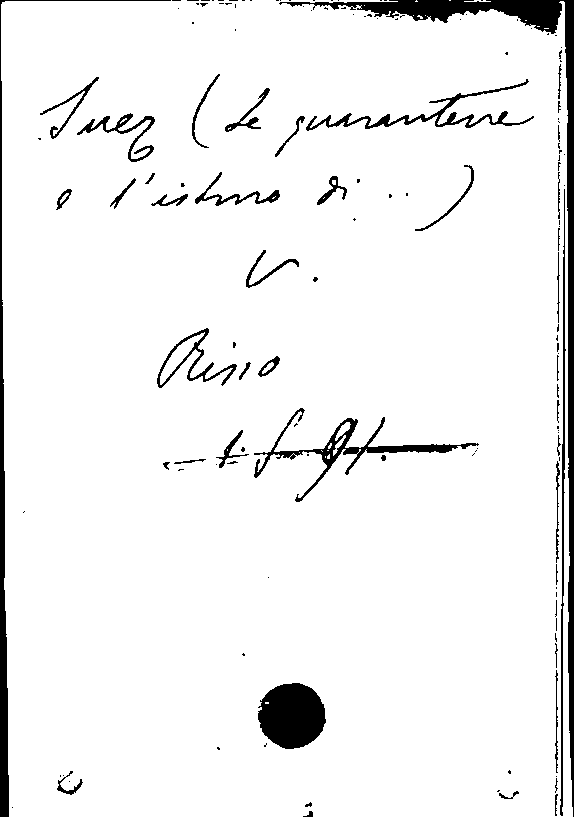 Suez (Le quarantene
e l'istmo di ..)
V.
Risso